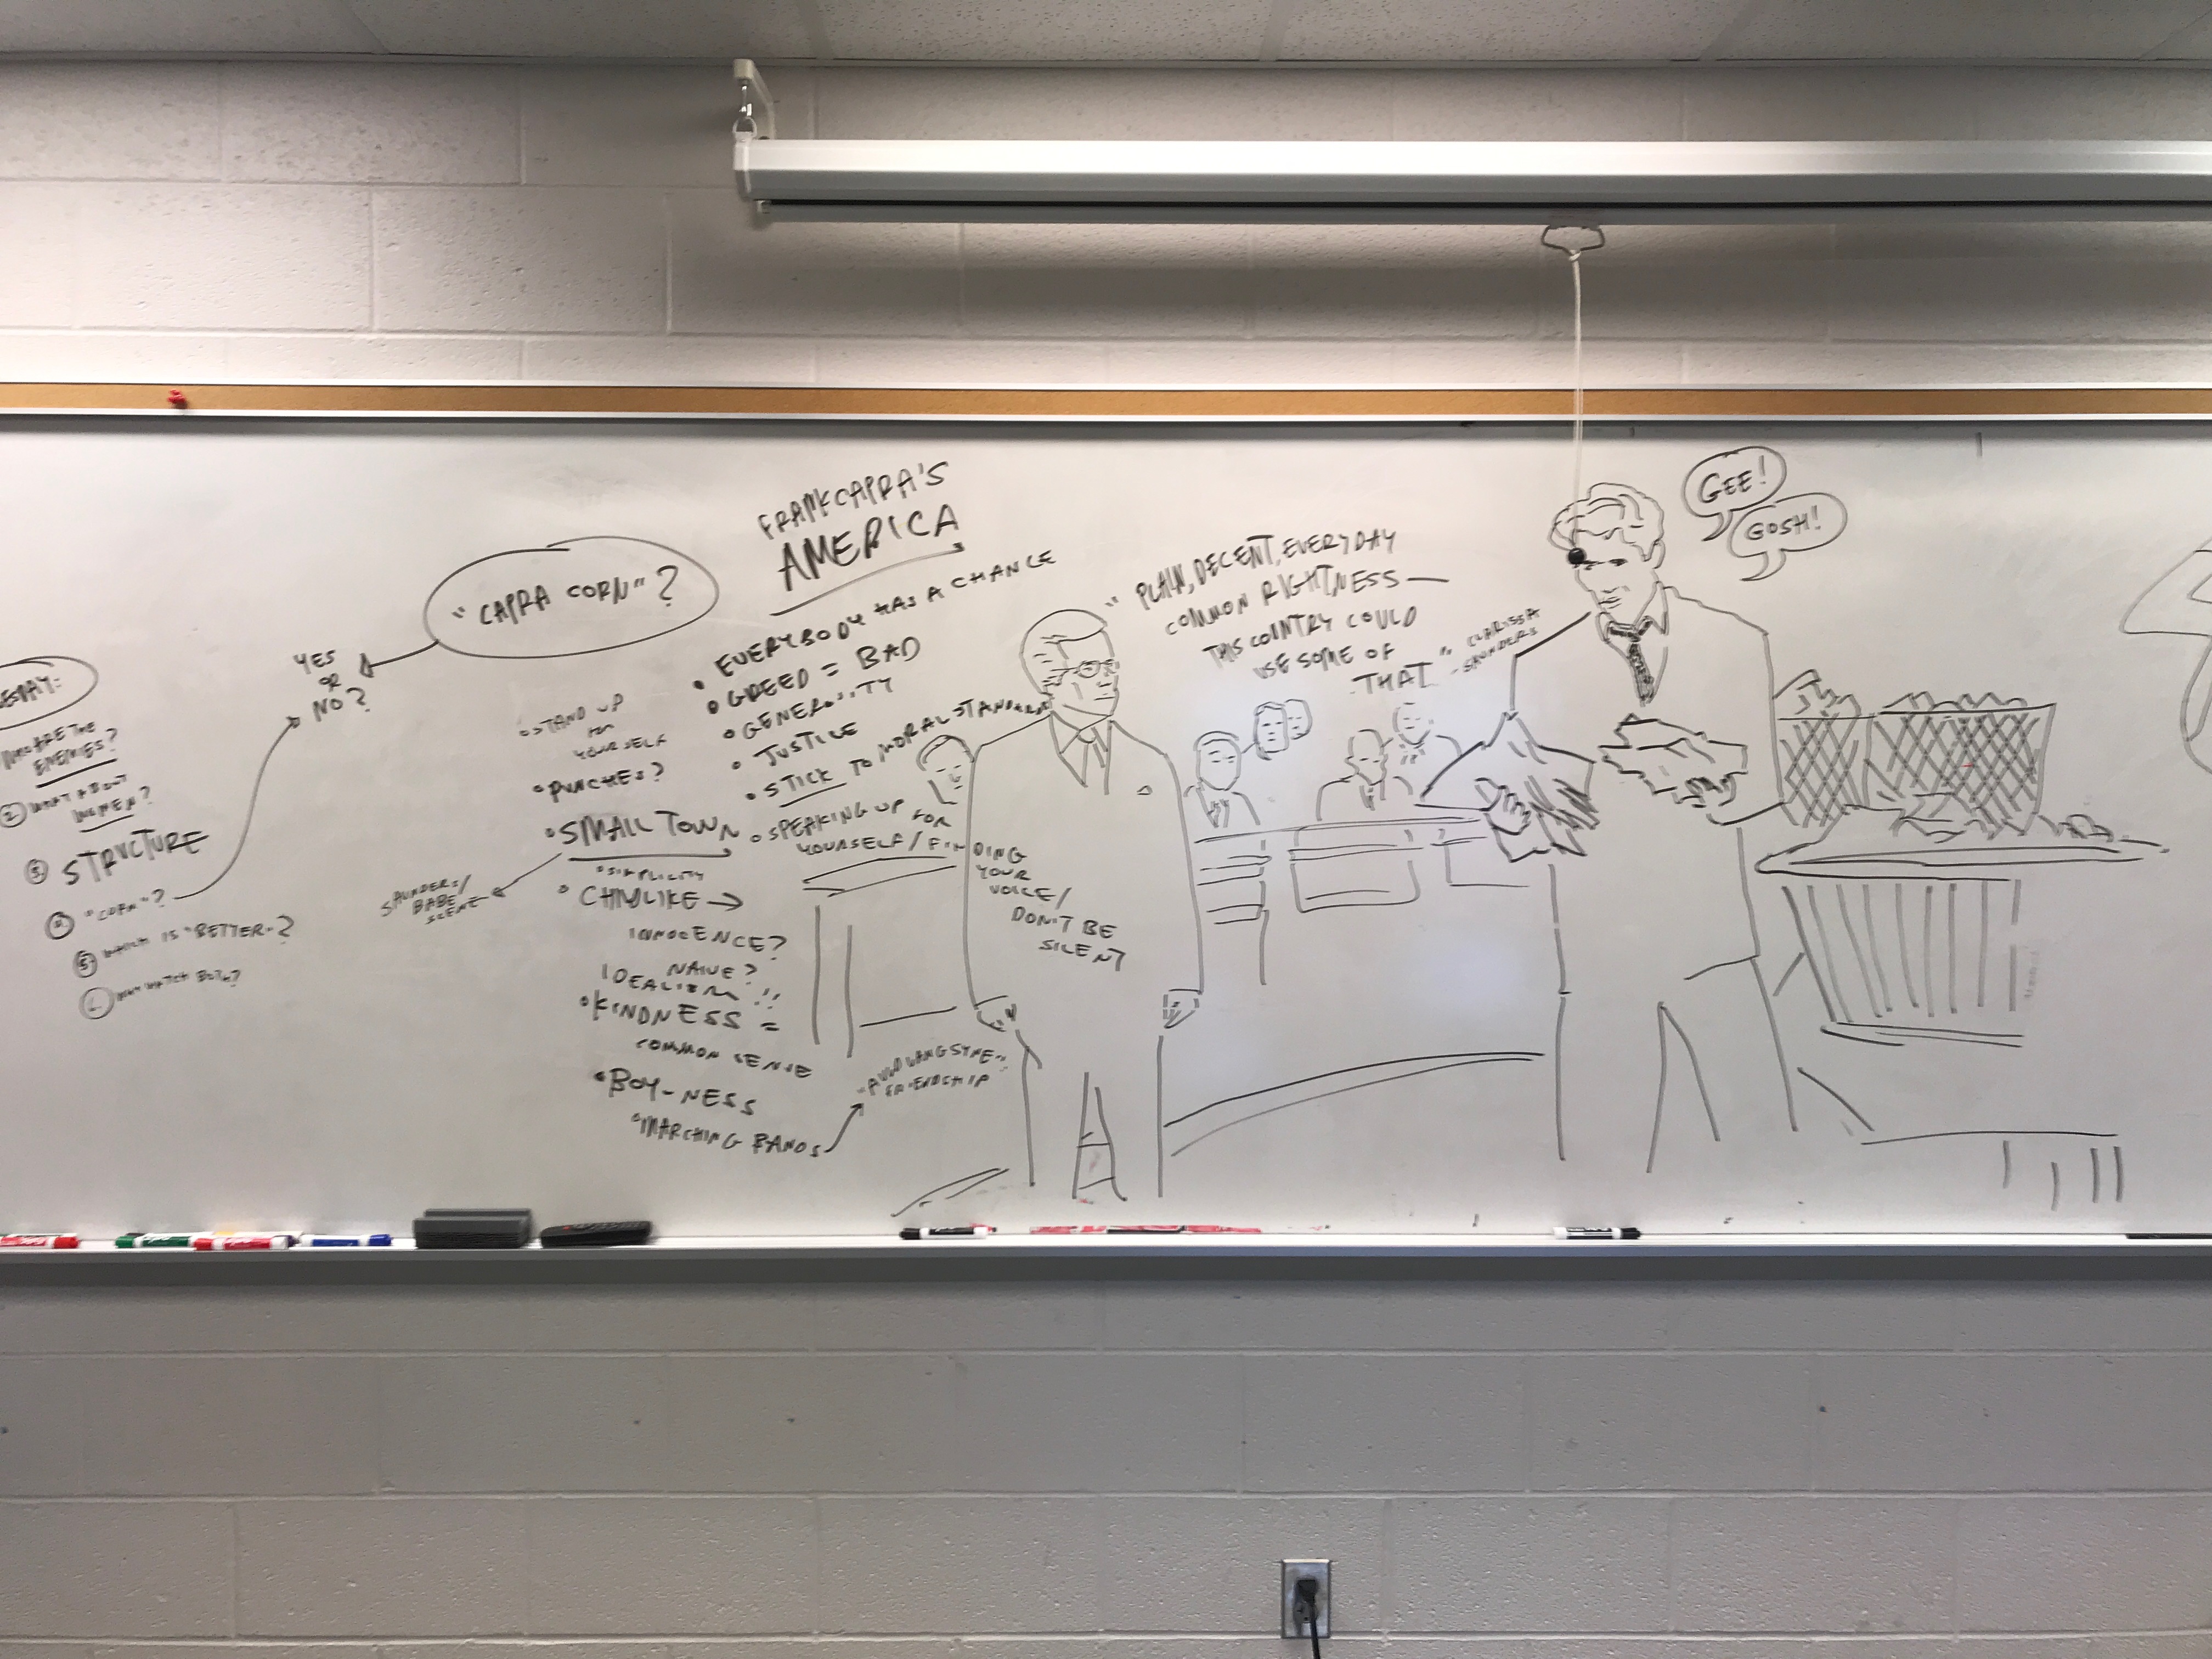 ESSAY:
WHO ARE THE
ENEMIES?
② WHAT ABOUT
WOMEN?
③ STRUCTURE
④ "CORN"?
⑤ WHICH IS "BETTER"?
WHY WATCH BOTH?
YES
OR
NO?
"CAPRA CORN"?
FRANK CAPRA'S
AMERICA
• EVERYBODY HAS A CHANCE
• GREED = BAD
• GENEROSITY
• JUSTICE
• STICK TO MORAL STANDARDS
• SPEAKING UP FOR
YOURSELF / FINDING
YOUR
VOICE /
DON'T BE
SILENT
• STAND UP
FOR
YOURSELF
• PUNCHES?
• SMALL TOWN
• SIMPLICITY
SAUNDERS/
BABE
SCENE
• CHILDLIKE →
INNOCENCE?
NAIVE?
IDEALISM!!
• KINDNESS =
COMMON SENSE
• BOY-NESS
• MARCHING BANDS
"AULD LANG SYNE"
FRIENDSHIP
"PLAIN, DECENT, EVERYDAY
COMMON RIGHTNESS —
THIS COUNTRY COULD
USE SOME OF
THAT"
- CLARISSA
SAUNDERS
GEE!
GOSH!